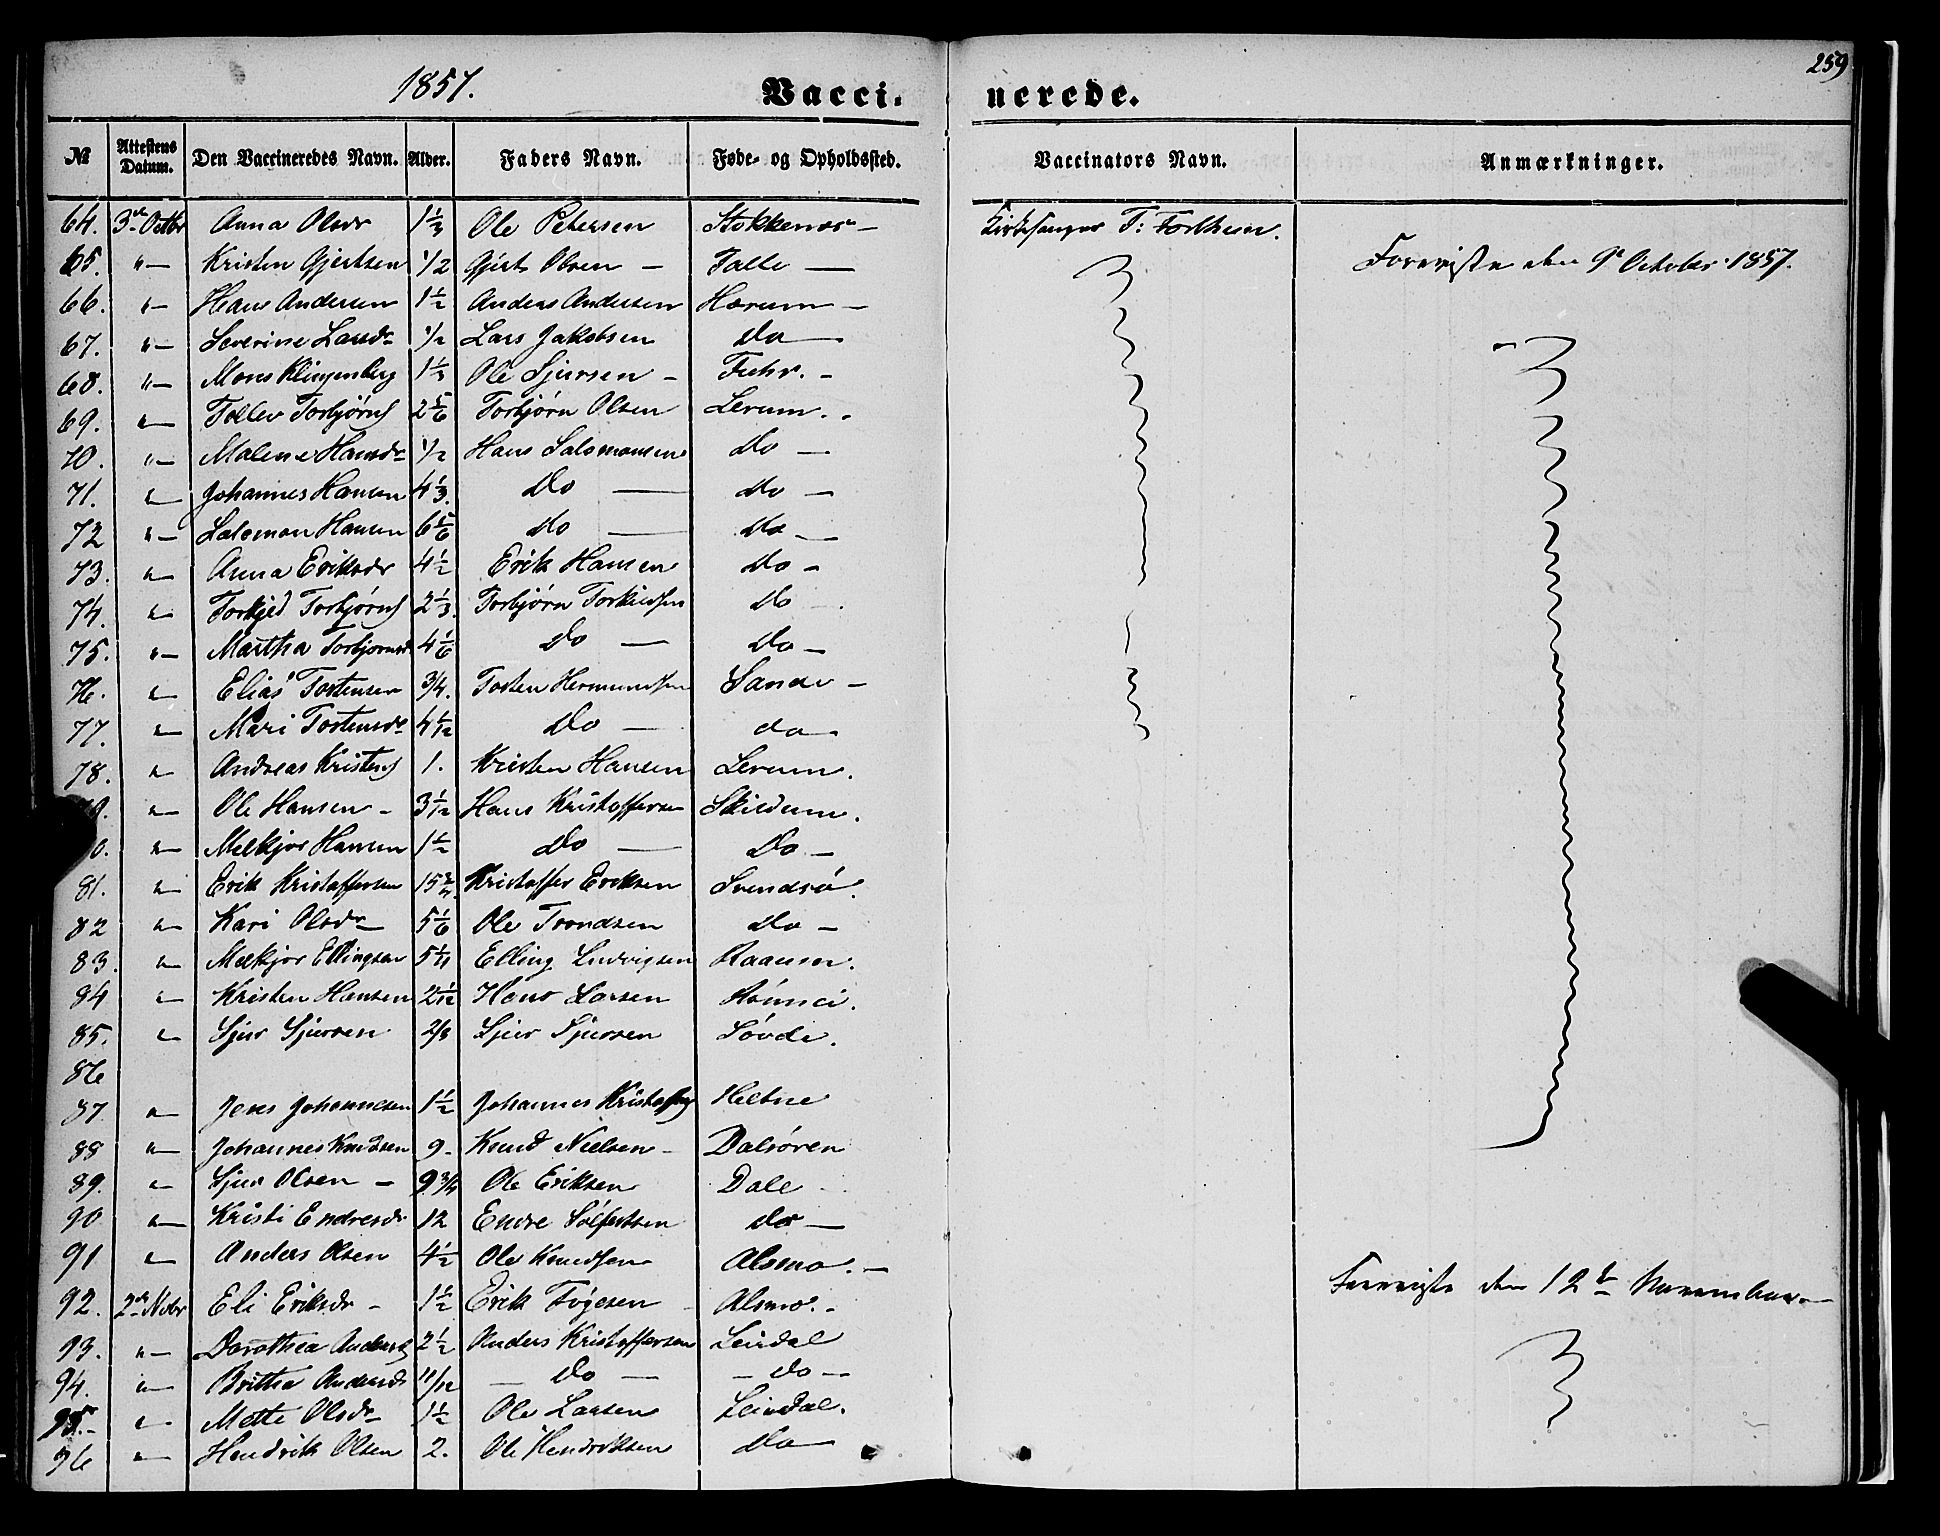 259
1857. Vacci. nerede.
№ Attestens Datum. Den Vaccineredes Navn. Alder. Faders Navn. Føde- og Opholdssted. Vaccinators Navn. Anmærkninger.
64. 3de Octbr Anna Olsdr 1 1/3 Ole Petersen Stokkenæs — Kirkesanger T:
65. "— Kristen Gjertsen 1/2 Gjert Olsen — Talle — Foreviste den 9de October 1857.
66. "— Hans Andersen 1 1/2 Anders Andersen Hærum —
67. "— Severine Larsdr 1/2 Lars Jakobsen do —
68. "— Mons Klingenberg 1 1/3 Ole Sjursen — Fuhr. -
69. "— Tollev Torbjörns 2 5/6 Torbjörn Olsen Lerum. -
70. "— Malene Hansdr 1/2 Hans Salomonsen do —
71. "— Johannes Hansen 4 1/3. Do — do —
72 "— Salomon Hansen 6 5/6 do — do —
73. "— Anna Eriksdr 4 1/2 Erik Hansen do -
74. "— Torkjel Torbjörns 2 1/3. Torbjörn Torkildsen do —
75. "— Martha Torbjornsd 4 1/6 Do — do —
76. "— Elias Tostensen 3/4. Tosten Hermundsen Sande —
77. "— Mari Tostensdr 4 1/12 Do — do —
78. "— Andreas Kristens 1. Kristen Hansen Lerum.
9. "— Ole Hansen - 3 1/12 Hans Kristoffersen Skildum.
0. "— Melkjor Hansen 1 1/2 Do — Do —
81. "— Erik Kristoffersen 15 3/4. Kristoffer Eriksen Svendsø.
82 "— Kari Olsdr 5 1/6 Ole Trondsen do —
83. "— Melkjor Ellingsen 5 1/11 Elling Ludvigsen Raaum.
84 "— Kristen Hansen 2 1/12 Hans Larsen
85. "— Sjur Sjursen 2/3 Sjur Sjursen Søvde.
86
87 "— Jens Johannesen 1 1/2 Johannes Kristoffers Heltne
88 "— Johannes Knudsen 9 - Knud Nielsen - Dalsören
89. "— Sjur Olsen — 9 3/4 Ole Eriksen Dale -
90 "— Kristi Endresdr 12 Endre Solfestsen do —
91 "— Anders Olsen 4 1/2 Ole Knudsen Alsmo. —
92. 2de Nobr Eli Eriksdr - 1 1/2 Erik Tögesen Alsmo. - Foreviste den 12te November —
93. "— Dorothea Anders 2 1/2 Anders Kristoffersen Leirdal
94. "— Brithe Andersdr 11/12 — Do — — do —
95. - "— Mette Olsdr 1 1/2 Ole Larsen Leirdal.
96 "— Hendrik Olsen 2. Ole Hendriksen do —